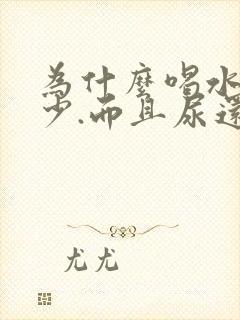 為什麼喝水
少.而且尿還
尤尤